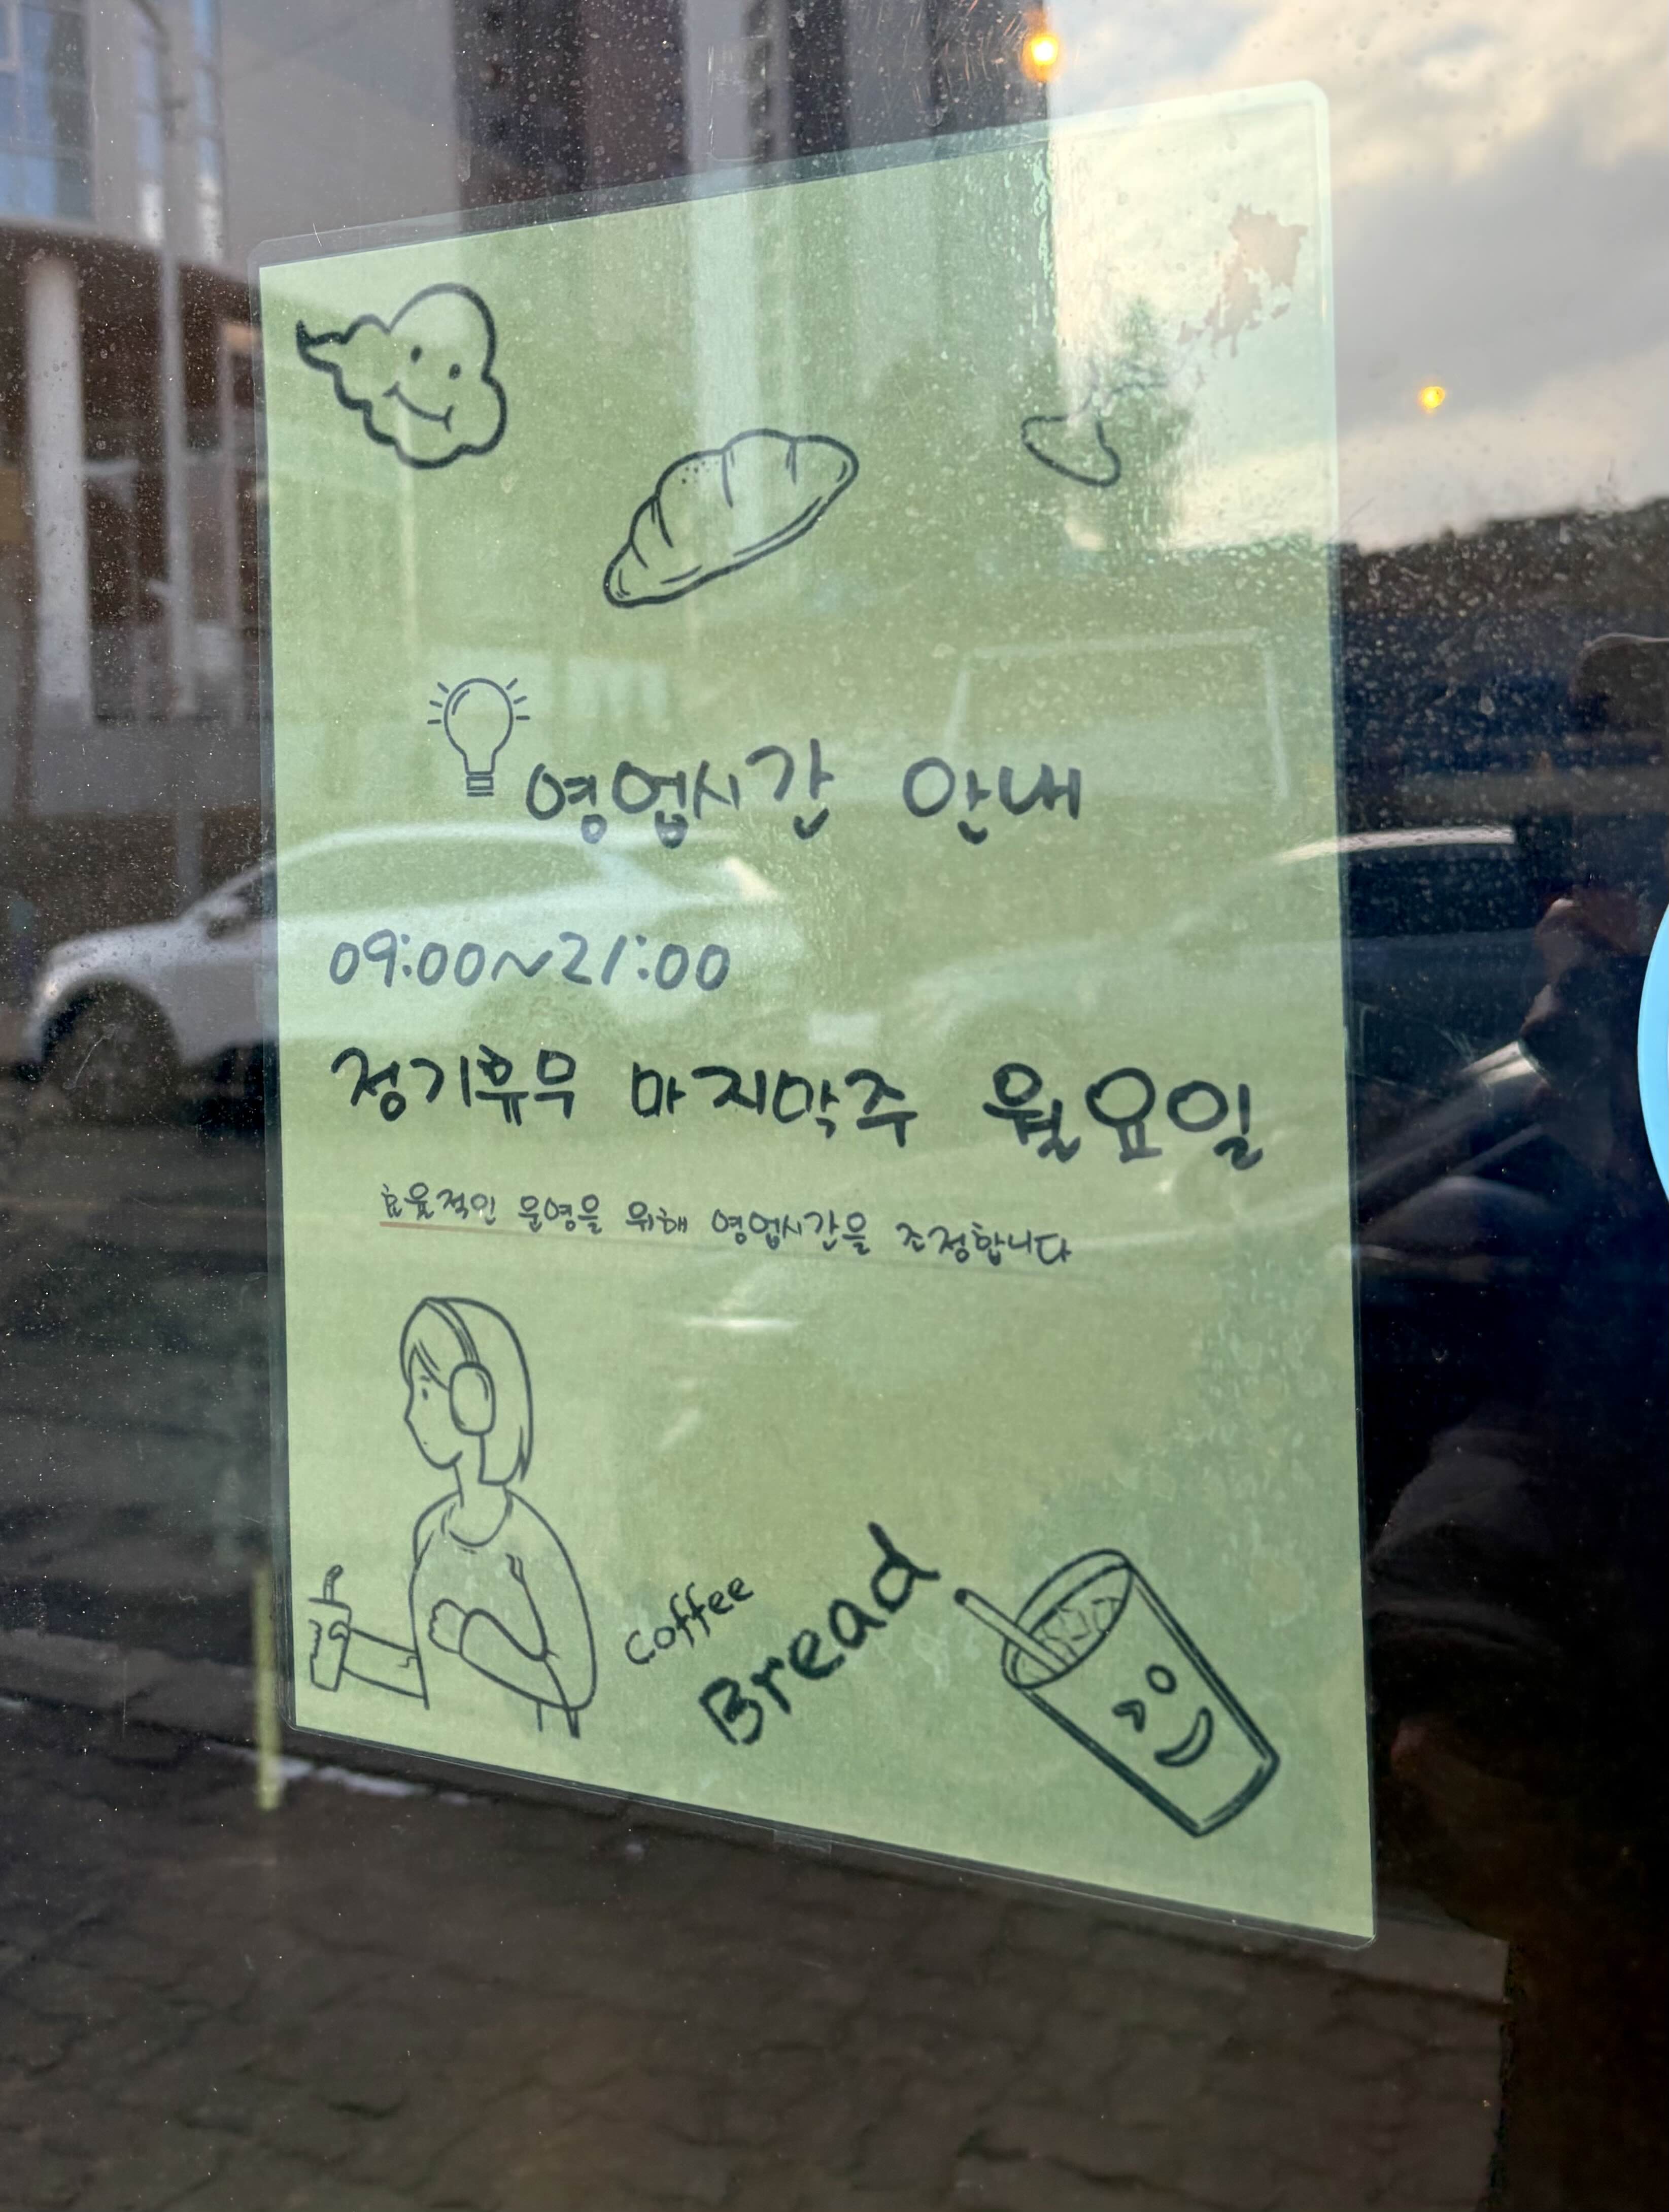 영업시간 안내
09:00~21:00
정기휴무 마지막주 월요일
효율적인 운영을 위해 영업시간을 조정합니다
coffee
Bread